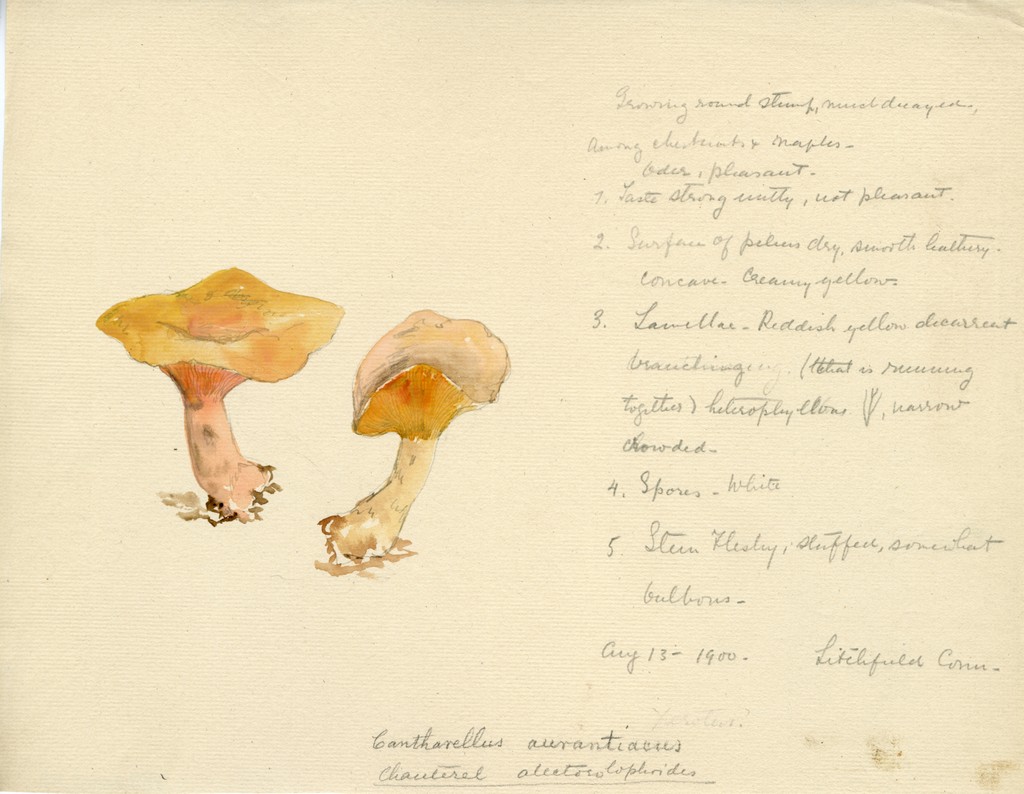 Growing round stump, much decayed,
Among chestnuts & maples -
Oder, pleasant -
1. Taste strong nutty, not pleasant.
2. Surface of pileus dry, smooth leathery -
concave - Creamy yellow -
3. Lamellae - Reddish yellow decurrent
branchinging. (that is running
together) heterophyllous, narrow
Crowded -
4. Spores - White
5. Stem Fleshy, stuffed, somewhat
bulbous -
Aug 13 - 1900. Litchfield Conn -
Cantharellus aurantiacus
Chanterel alectorolophoides